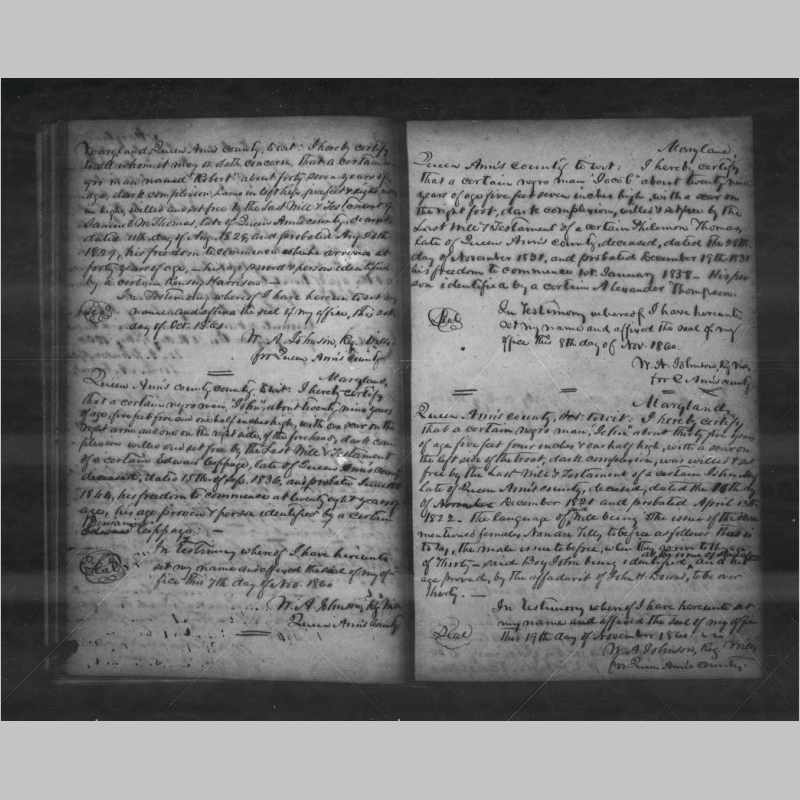 Maryland, Queen Ann's county, to wit: I hereby certify
to all whom it may or doth concern, that a certain
negro man named "Robert" about forty seven years of
age, dark complexion, lame in left hip,
willed and set free by the Last Will & Testament of
Samuel W. Thomas, late of Queen Ann's county, deceased,
dated 11th day of Aug. 1828, and probated Aug.
1829, his freedom to commence when he arrives at
forty years of age, — his age proved & person identified
by a certain Harrison —
In Testimony whereof I have hereunto set my
name and affixed the seal of my office, this
day of Oct. 1860.
Seal
W. A. Johnson, Reg. Wills
for Queen Ann's County
Maryland,
Queen Ann's county county, to wit: I hereby certify
that a certain negro man, "John", about twenty nine years
of age, five feet five and one half inches high, with one scar on the
right arm and one on the right side, of the forehead, dark com-
plexion willed and set free by the Last Will & Testament
of a certain Edward Coppage, late of Queen Ann's county
deceased, dated 15th of Sep. 1836, and probated June
1844, his freedom to commence at twenty eight years of
age, his age proven & person identified by a certain
Benjamin
Edward Coppage. —
In testimony whereof I have hereunto
set my name and affixed the seal of my of-
fice this 7th day of Nov. 1860
Seal
W. A. Johnson, Reg. Wills
Queen Ann's county
Maryland,
Queen Ann's county to wit: I hereby certify
that a certain negro man "Jacob" about twenty nine
years of age five feet seven inches high, with a scar on
the right foot, dark complexion, willed & set free by the
Last Will & Testament of a certain Philemon Thomas,
late of Queen Ann's county, deceased, dated the
day of November 1831, and probated December 19th 1831
his freedom to commence 1st. January 1838 — His per-
son identified by a certain Alexander Thompson.
In testimony whereof I have hereunto
set my name and affixed the seal of my
office this 8th day of Nov. 1860.
Seal
W. A. Johnson, Reg Wills,
for Q Ann's county
Maryland,
Queen Ann's county, to wit: I hereby certify
that a certain negro man, "John" about thirty five years
of age five feet four inches & one half high, with a scar on
the left side of the throat, dark complexion, was willed & set
free by the Last Will & Testament of a certain John
late of Queen Ann's county, deceased, dated the 18th day
of November December 1821 and probated April
1822 — the language of said Will being "the issue of the above
mentioned females, Nan and Tilly, to be free as follows that is
to say, the male issue to be free, when they arrive to the age
of Thirty — said Boy John being identified, and his
age proved, by the affidavit of John H. Downs, to be over
thirty. —
In Testimony whereof I have hereunto set
my name and affixed the seal of my office
this 19th day of November 1860.
Seal
W. A. Johnson, Reg Wills,
for Queen Ann's county